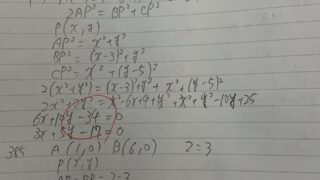 2AP² = BP² + CP²
P(x, y)
AP² = x² + y²
BP² = (x-3)² + y²
CP² = x² + (y-5)²
2(x² + y²) = (x-3)² + y² + x² + (y-5)²
2x² + 2y² = x² - 6x + 9 + y² + x² + y² - 10y + 25
6x + 10y - 34 = 0
3x + 5y - 17 = 0
385 A(1,0) B(6,0) 2:3
P(x, y)
AP : BP = 2:3